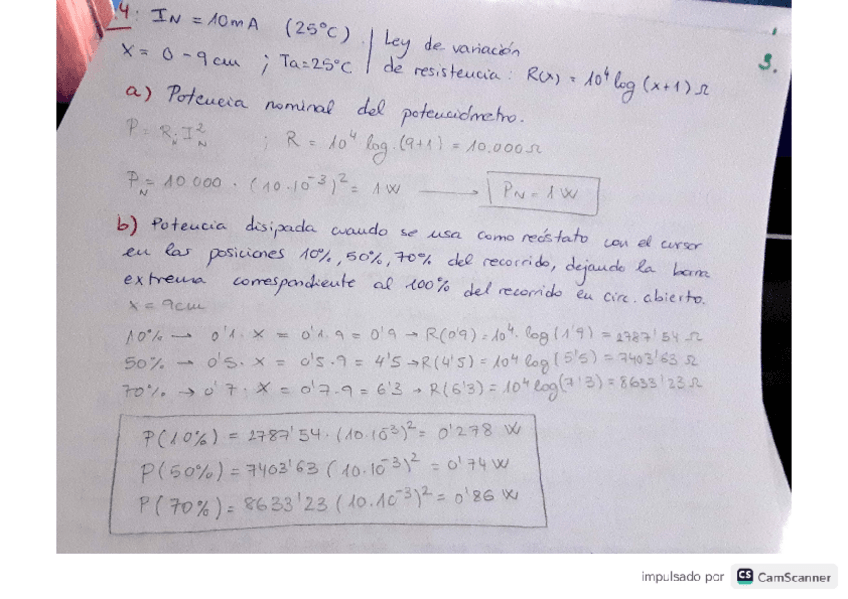 4: IN = 10mA (25°C) | Ley de variación
X = 0 - 9 cm ; Ta = 25°C | de resistencia : R(x) = 10⁴ log (x+1) Ω
3.
a) Potencia nominal del potenciómetro.
P = Rx I²N ; R = 10⁴ log (9+1) = 10.000 Ω
PN = 10 000 · (10·10⁻³)² = 1 W → PN = 1 W
b) Potencia disipada cuando se usa como reóstato con el cursor
en las posiciones 10%, 50%, 70% del recorrido, dejando la barra
extrema correspondiente al 100% del recorrido en circ. abierto.
x = 9cm
10% → 0'1 · X = 0'1 · 9 = 0'9 → R(0'9) = 10⁴ · log (1'9) = 2787'54 Ω
50% → 0'5 · X = 0'5 · 9 = 4'5 → R(4'5) = 10⁴ log (5'5) = 7403'63 Ω
70% → 0'7 · X = 0'7 · 9 = 6'3 → R(6'3) = 10⁴ log (7'3) = 8633'23 Ω
P(10%) = 2787'54 · (10·10⁻³)² = 0'278 W
P(50%) = 7403'63 (10·10⁻³)² = 0'74 W
P(70%) = 8633'23 (10·10⁻³)² = 0'86 W
impulsado por CS CamScanner